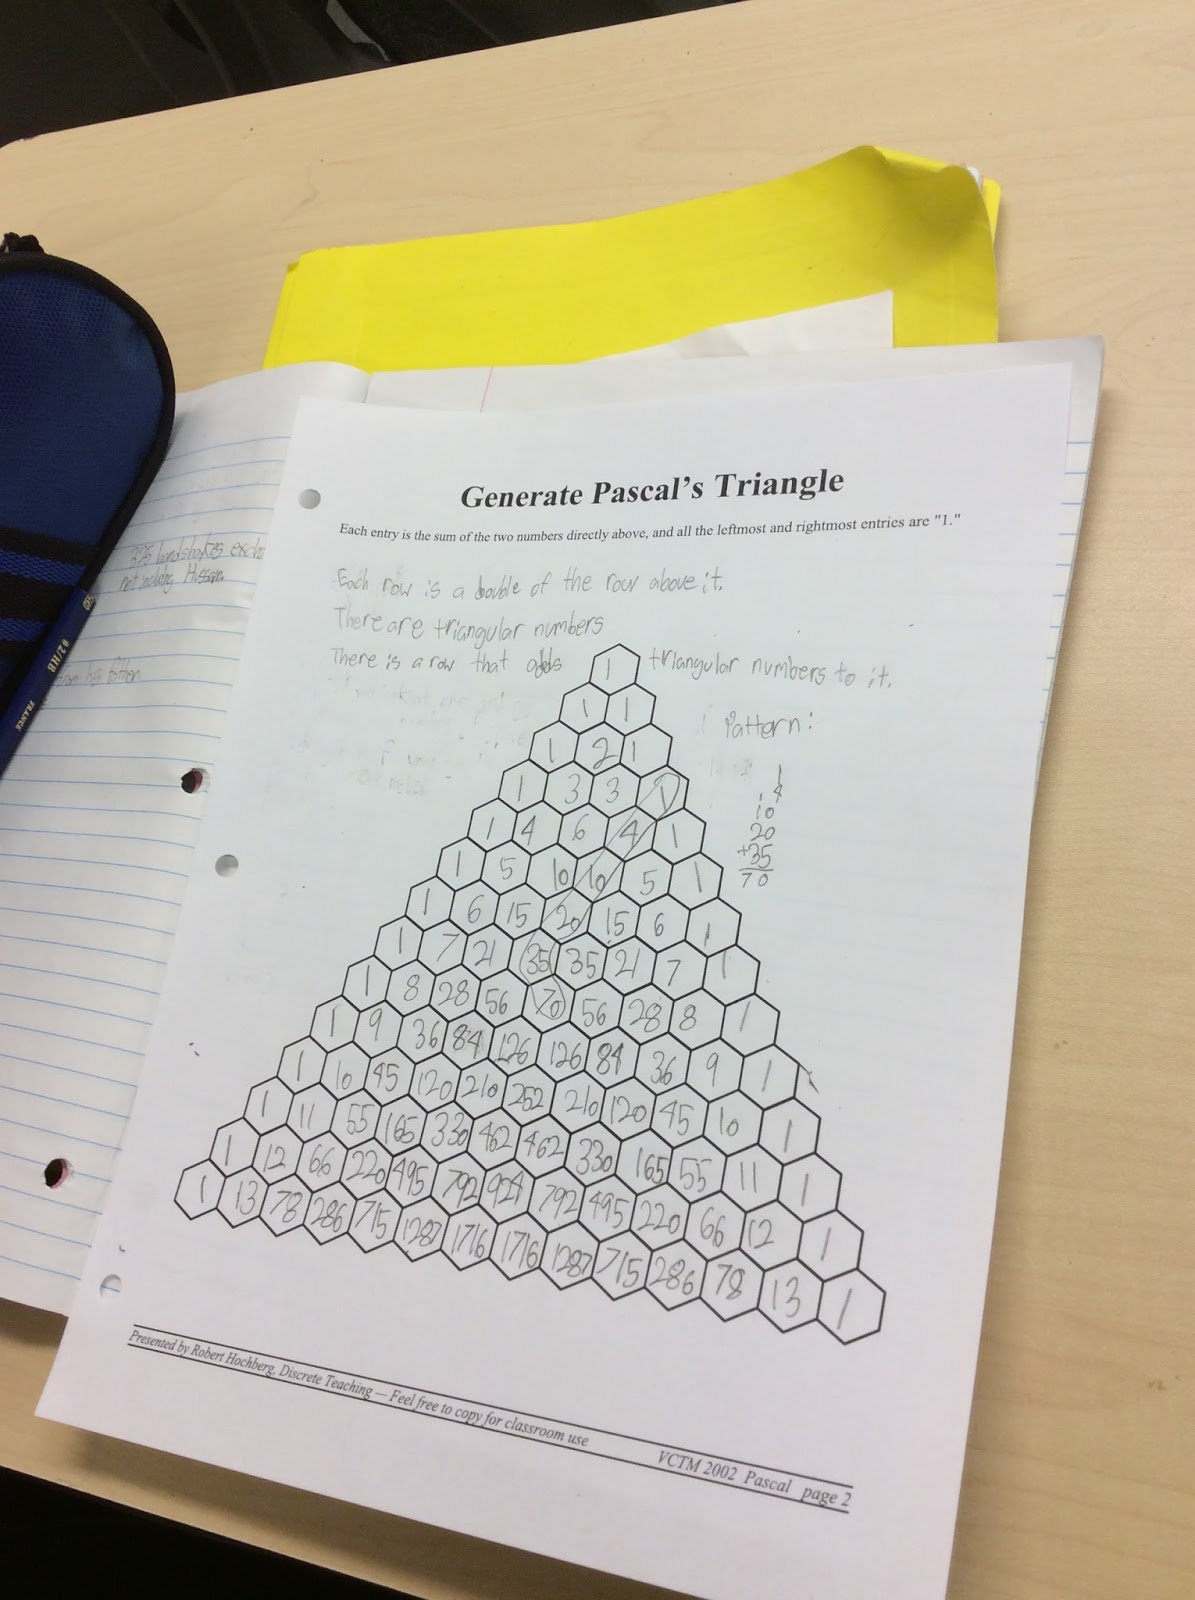 Generate Pascal's Triangle
Each entry is the sum of the two numbers directly above, and all the leftmost and rightmost entries are "1."
Each row is a double of the row above it.
There are triangular numbers
There is a row that adds triangular numbers to it.
Pattern:
1
4
10
20
+35
70
1
1 1
1 2 1
1 3 3 1
1 4 6 4 1
1 5 10 10 5 1
1 6 15 20 15 6 1
1 7 21 35 35 21 7 1
1 8 28 56 70 56 28 8 1
1 9 36 84 126 126 84 36 9 1
1 10 45 120 210 252 210 120 45 10 1
1 11 55 165 330 462 462 330 165 55 11 1
1 12 66 220 495 792 924 792 495 220 66 12 1
1 13 78 286 715 1287 1716 1716 1287 715 286 78 13 1
Presented by Robert Hochberg, Discrete Teaching — Feel free to copy for classroom use
VCTM 2002 Pascal page 2
325 handshakes
not including Hussain
from his father
#2/HB
FRANCE